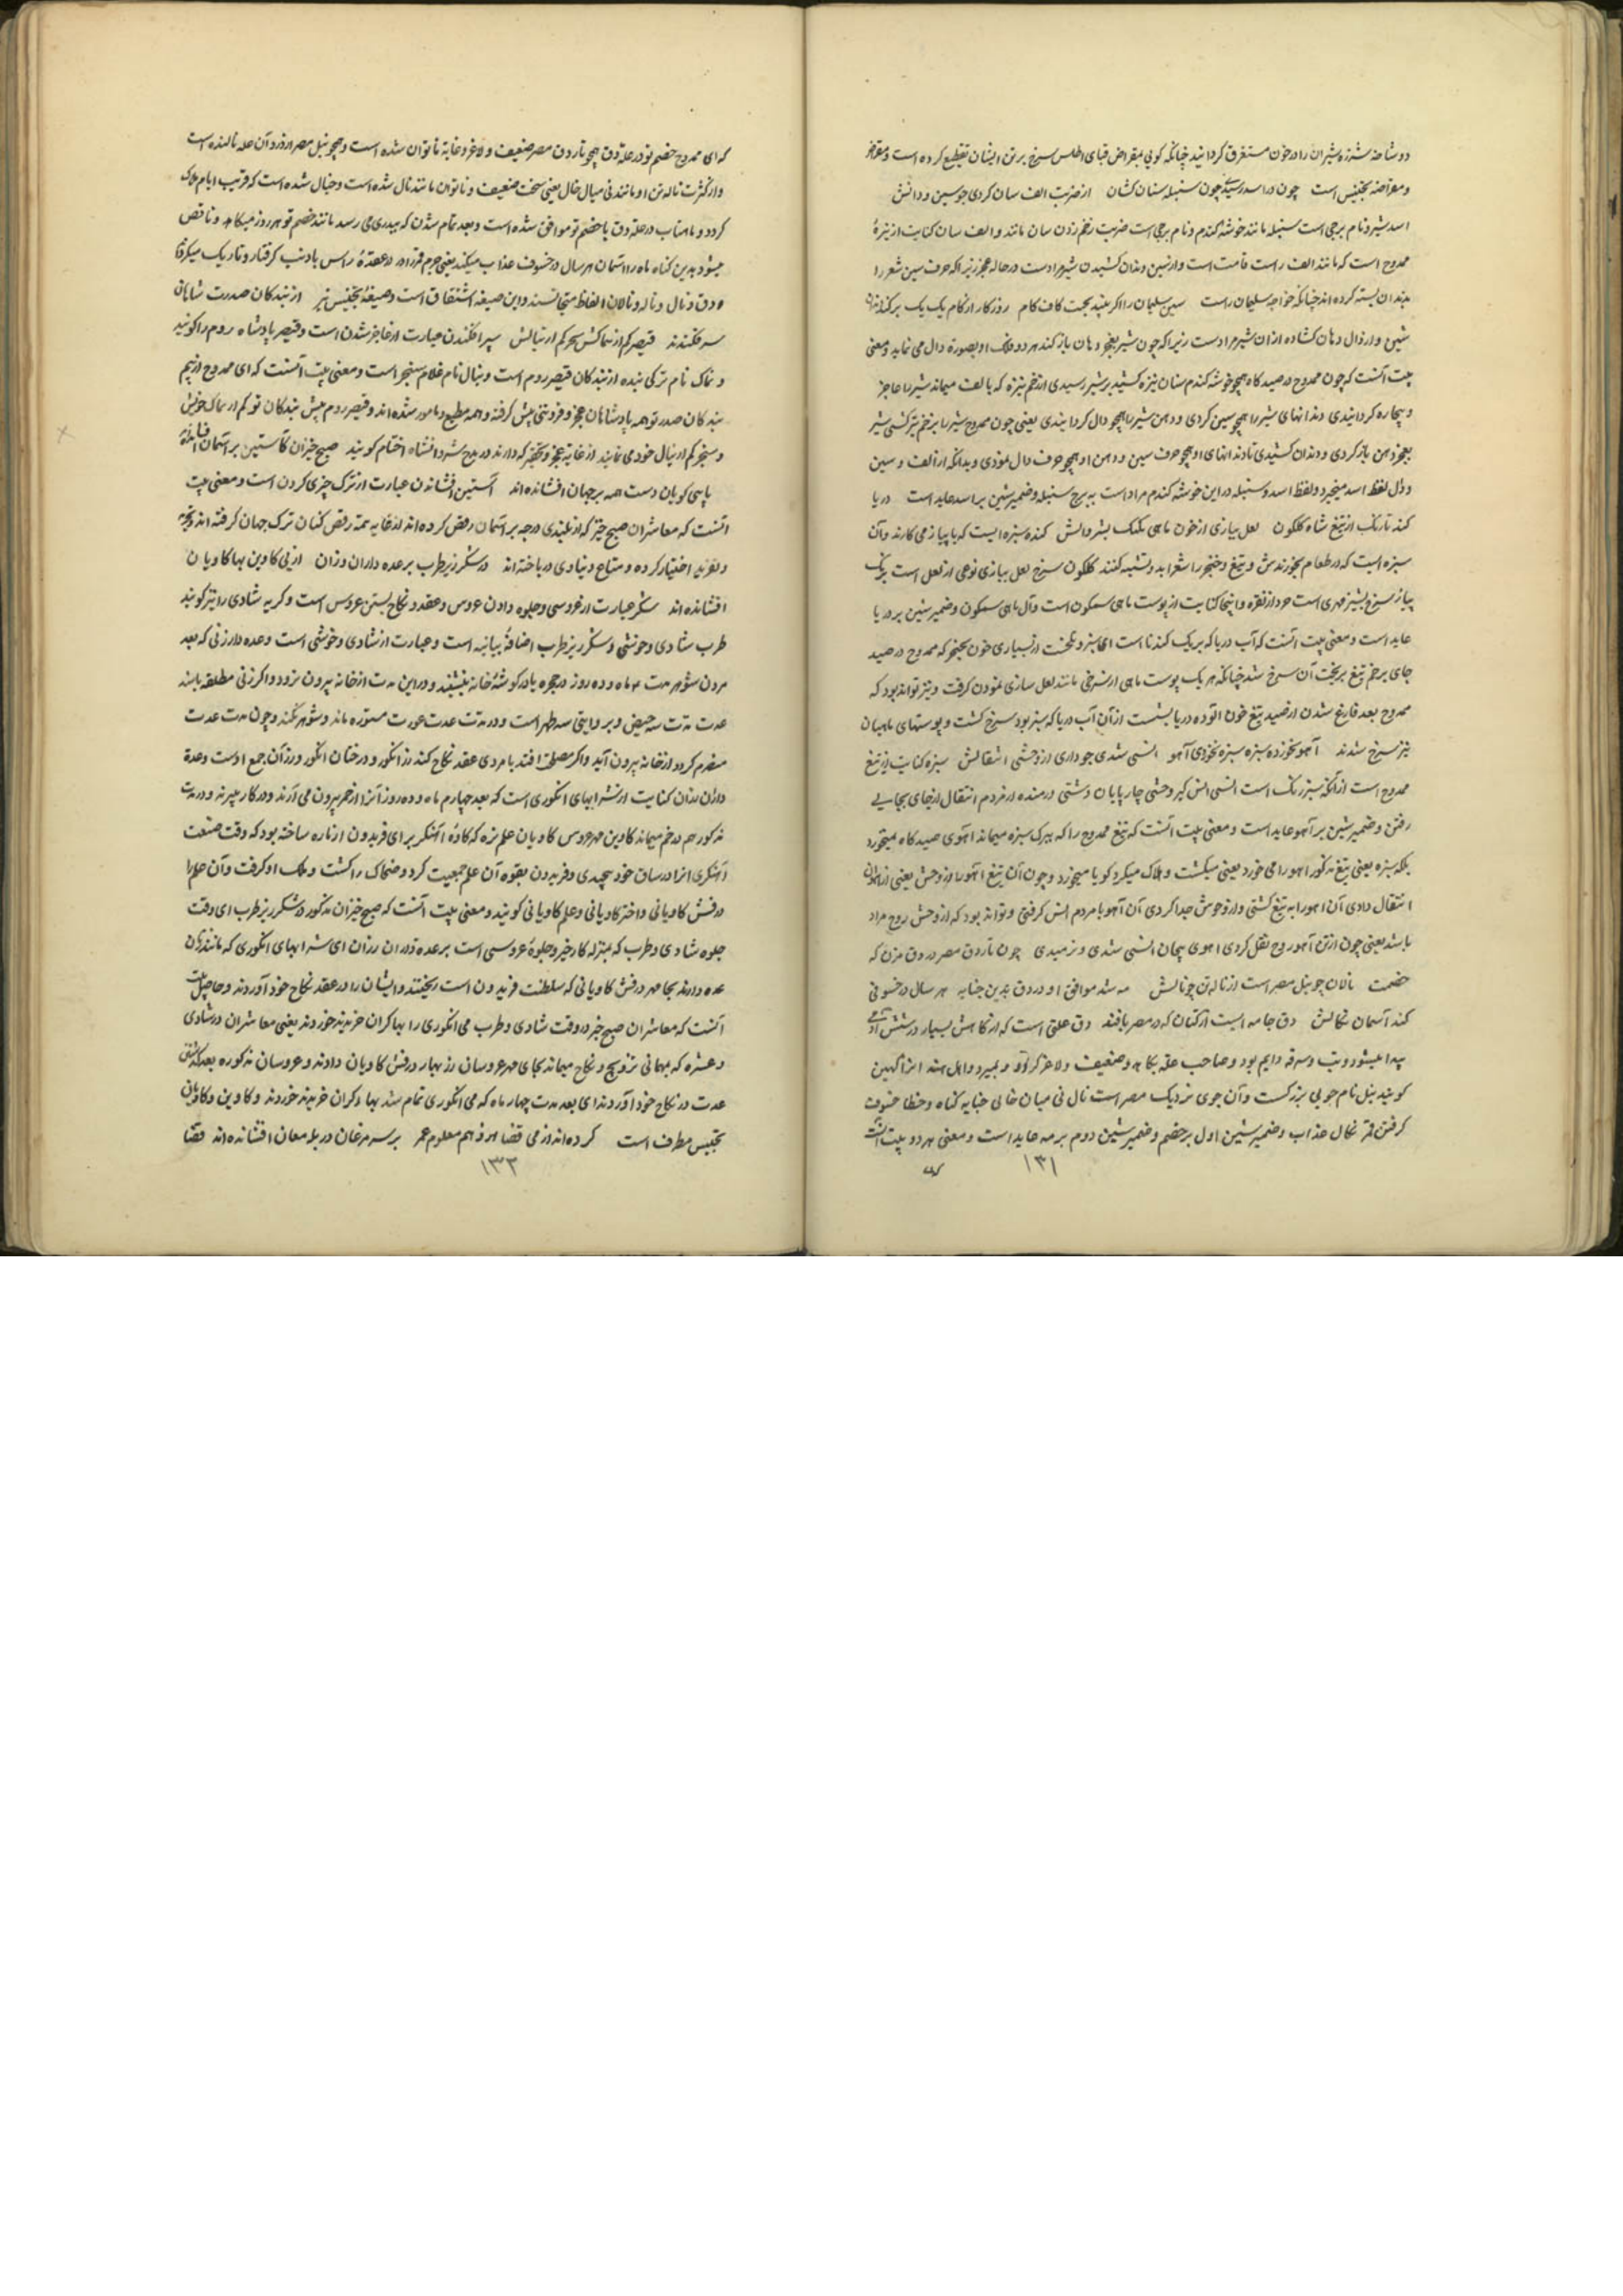 دوشاخه شرزه شیران را در خون مستغرق گردانید چنانکه گویی بمقراض قبای اطلس سرخ بر تن ایشان تقطیع کرده است و مقراض
و مقراضه تجنیس است چون در اسد رسیدی چون سنبله سنان کشان از ضربت الف سان کردی چو سین و دالش
اسد شیر و نام برجی است سنبله مانند خوشه گندم و نام برجی است ضربت زخم زدن سان مانند و الف سان کنایت از نیزهٔ
ممدوح است که مانند الف راست قامت است و از سین دندان کشیدن شیر مراد است در حاله عجز زیرا که حرف سین شعرا
بدندان نسبته کرده اند چنانکه خواجه سلیمان راست سین سلیمان را اگر بیند بجنب کاف کام روزگار از کام یک یک برکند دندان
شین و از دال دهان گشاده از آن شیر مراد است زیرا که چون شیر بعجز دهان باز کند هر دو فک او بصورة دال می نماید و معنی
بیت آنست که چون ممدوح در صیدگاه همچو خوشه گندم سنان نیزه کشید بر شیر رسیدی از زخم نیزه که بالف میماند شیر را عاجز
و بیچاره گردانیدی دندانهای شیر را همچو سین کردی و دهن شیر را همچو دال گردانیدی یعنی چون ممدوح شیر را بزخم نیزه کشتی شیر
بعجز دهن باز کردی و دندان کشیدی تا دندانهای او همچو حرف سین و دهن او همچو حرف دال نمودی و بدانکه از الف و سین
و دال لفظ اسد میخیزد و لفظ اسد و سنبله در این خوشه گندم مراد است به برج سنبله و ضمیر شین بر اسد عاید است دریا
کندنا رنگ از تیغ شاه گلگون لعل پیازی از خون ماهی بشیز والش کندنا سبزه ایست که با پیاز می کارند و آن
سبزه ایست که در طعام بخورندش و تیغ و خنجر را شعرا بدو تشبیه کنند گلگون سرخ لعل پیازی نوعی از لعل است برنگ
پیاز سرخ بشیز مهری است خرد از نقره و اینجا کنایت از پوست ماهی است و ضمیر شین بر دریا
عاید است و معنی بیت آنست که آب دریا که برنگ کندنا است ای سبز و از بسیاری خون نخجیر که ممدوح در صید
جای بزخم تیغ بریخت آن سرخ شد چنانکه هر یک پوست ماهی از سرخی مانند لعل پیازی نمودن گرفت و نیز تواند بود که
ممدوح بعد فارغ شدن از صید تیغ خون آلوده در دریا بشست از آن آب دریا که سبز بود سرخ گشت و پوستهای ماهیان
نیز سرخ شدند آهو نخورده سبزه سبزه بخوردی آهو انسی شدی چو داری از وحشی انتقالش سبزه کنایت از تیغ
ممدوح است از آنکه سبز رنگ است انسی انس گیر وحشی چارپایان دشتی رمنده از مردم انتقال از جای بجایی
رفتن و ضمیر شین بر آهو عاید است و معنی بیت آنست که تیغ ممدوح را که ببرگ سبزه میماند آهوی صیدگاه نمیخورد
بلکه سبزه یعنی تیغ مذکور آهو را می خورد یعنی میکشت و هلاک میکرد گویا میخورد و چون آن تیغ آهو را از وحش یعنی از آهوان
انتقال دادی آن آهو را به تیغ کشتی و از وحوش جدا کردی آن آهو با مردم انس گرفتی و تواند بود که از وحش روح مراد
باشد یعنی چون از تن آهو روح نقل کردی آهوی بیجان انسی شدی و نرمیدی چون تار دق مصر در دق مزن که
خصمت نالان چو نیل مصر است از ناله تن چو نالش مه شد موافق او در دق بدین جنایه هر سال در خسوفی
کند آسمان نکالش دق جامه ایست از کتان که در مصر بافند دق علتی است که از کاهش بسیار در شش آدمی
پیدا میشود و تب و سرفه دایم بود و صاحب علة بکاهد و ضعیف و لاغر گردد و بمیرد و اهل هند آنرا کهین
گویند نیل نام جویی بزرگست و آن جوی نزدیک مصر است نال نی میان خالی جنایه گناه و خطا خسوف
گرفتن قمر نکال عذاب و ضمیر شین اول بر خصم و ضمیر شین دوم بر مه عاید است و معنی هر دو بیت آنست
۱۳۱
که ای ممدوح خصم تو در علة دق همچو تار دق مصر ضعیف و لاغر و غایة ناتوان شده است و همچو نیل مصر از درد آن علة نالنده است
و از کثرت ناله تن او مانند نی میان خالی یعنی سخت ضعیف و ناتوان مانند نال شده است و خیال شده است که قریب ایام هلاک
گردد و ماهتاب در علة دق با خصم تو موافق شده است و بعد تمام شدن که ببدری می رسد مانند خصم تو هر روز میکاهد و ناقص
میشود بدین گناه ماه را آسمان هر سال در خسوف عذاب میکند یعنی جرم قمر را در عقدهٔ راس یا ذنب گرفتار و تاریک میکرد
و دق و نال و ناله و نالان الفاظ متجانسند و این صیغه اشتقاق است و صیغهٔ تجنیس نیز از بندگان صدرت شاهان
سر فکندند قیصر کم از نماکش سنجر کم از نیالش سپر افکندن عبارت از عاجز شدن است و قیصر پادشاه روم را گویند
و نماک نام ترکی بنده از بندگان قیصر روم است و نیال نام غلام سنجر است و معنی بیت آنست که ای ممدوح از بیم
بندگان صدر تو همه پادشاهان عجز و فروتنی پیش گرفته و همه مطیع و مامور شده اند و قیصر روم پیش بندگان تو کم از نماک خویش
و سنجر کم از نیال خود می نماید از غایة عجز و تحیّر که دارند در مدح شروانشاه اختتام گوید صبح خیزان کاستین بر آسمان افشانده اند
پای کوبان دست همت بر جهان افشانده اند آستین افشاندن عبارت از ترک چیزی کردن است و معنی بیت
آنست که معاشران صبح خیز که از بلندی درجه بر آسمان رقص کرده اند از غایه همة رقص کنان ترک جهان گرفته اند و تجرد
و تفرید اختیار کرده و متاع دنیاوی در باخته اند در شکرریز طرب بر عده داران رزان از پی کاوین بها کاویان
افشانده اند شکرریز عبارت از عروسی و جلوه دادن عروس و عقد و نکاح بستن عروس است و گریه شادی را نیز گویند
طرب شادی و خوشی و شکرریز طرب اضافهٔ بیانیه است و عبارت از شادی و خوشی است و عده دار زنی که بعد
مردن شوهر مدت ۴ ماه و ده روز در حجره یا در گوشهٔ خانه بنشیند و در این مدت از خانه بیرون نرود و اگر زنی مطلقه باشد
عدت مدت سه حیض و بر وایتی سه طهر است و در مدت عدت عورت مستوره ماند و شوهر نکند و چون مدت عدت
منصرم گردد از خانه بیرون آید و اگر مصلحة افتد با مردی عقد نکاح کند رز انگور و درختان انگور و رزان جمع اوست و عدهٔ
داران رزان کنایت از شرابهای انگوری است که بعد چهارم ماه و ده روز آنرا از خم بیرون می آرند و در کار میبرند و در مدت
مذکور هم در خم میماند کاوین مهر عروس کاویان علم نزه که کاوه آهنگر برای فریدون از پاره ساخته بود که وقت صنعت
آهنگری آنرا در ساق خود پیچیدی و فریدون بقوه آن علم جمعیت کرد و ضحاک را کشت و ملک او گرفت و آن علم را
درفش کاویانی و اختر کاویانی و علم کاویانی گویند و معنی بیت آنست که صبح خیزان مذکور در شکرریز طرب ای وقت
جلوه شادی و طرب که بمنزله کار خیر و جلوهٔ عروسی است بر عده داران رزان ای شرابهای انگوری که مانند زنان
عده دارند بجا مهر درفش کاویانی که سلطنت فریدون است ریختند و ایشان را در عقد نکاح خود آوردند و حاصل بیت
آنست که معاشران صبح خیز در وقت شادی و طرب می انگوری را بها گران خریده خوردند یعنی معاشران در شادی
و عشره که بمهمانی تزویج و نکاح میماند بجای مهر عروسان رز بها درفش کاویان دادند و عروسان مذکوره بعد گذشتن
عدت در نکاح خود آوردند ای بعد مدت چهار ماه که می انگوری تمام شد بها گران خریده خوردند و کاوین و کاویان
تجنیس مطرف است کرده اند از می قضا عمر و هم معلوم عمر بر سر مرغان در بلا معان افشانده اند قضا
۱۳۳